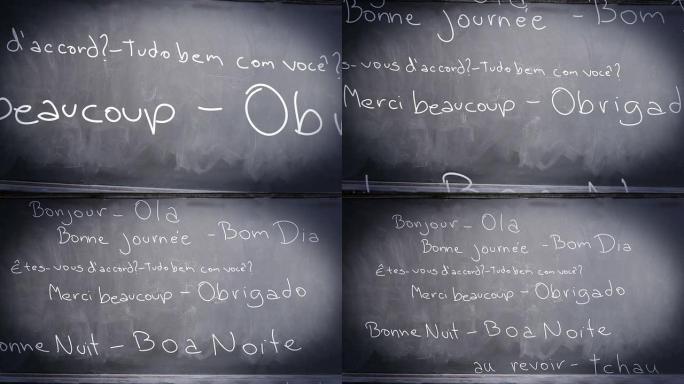 d'accord?-Tudo bem com você?
beaucoup - Ob
Bonne journée - Bom
s-vous d'accord?-Tudo bem com você?
Merci beaucoup - Obrigad
Bonjour - Ola
Bonne journée - Bom Dia
êtes-vous d'accord?-Tudo bem com você?
Merci beaucoup - Obrigado
onne Nuit - Boa Noite
Bonjour - Ola
Bonne journée - Bom Dia
êtes-vous d'accord?-Tudo bem com você?
Merci beaucoup - Obrigado
Bonne Nuit - Boa Noite
au revoir - tchau